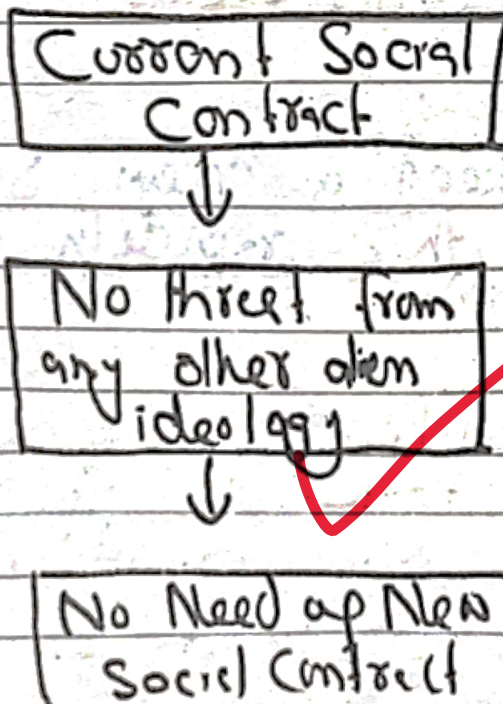 Current Social
Contract
No threet from
any other alien
ideology
No Need of New
Social Contract